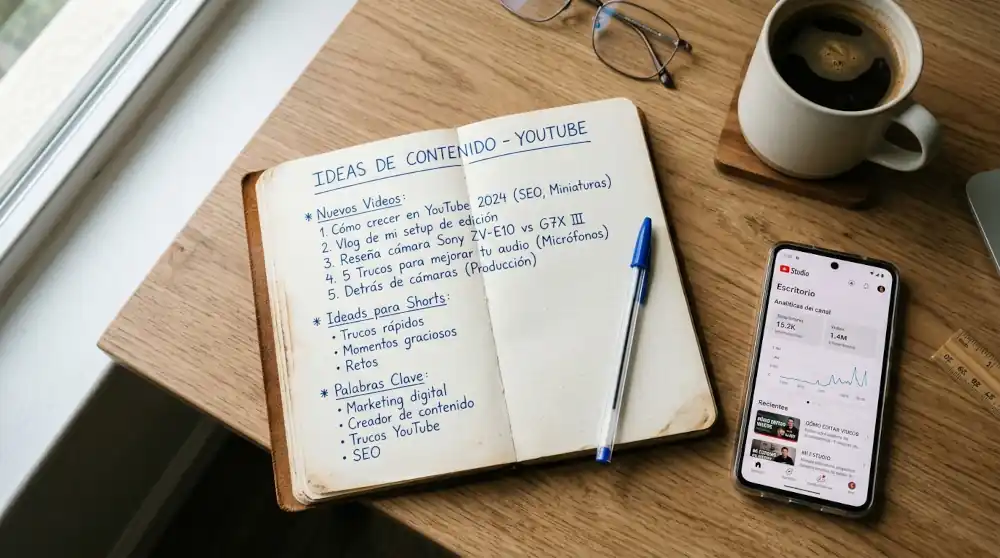 IDEAS DE CONTENIDO - YOUTUBE
* Nuevos Videos:
1. Cómo crecer en YouTube 2024 (SEO, Miniaturas)
2. Vlog de mi setup de edición
3. Reseña cámara Sony ZV-E10 vs G7X III
4. 5 Trucos para mejorar tu audio (Micrófonos)
5. Detrás de cámaras (Producción)
* Ideads para Shorts:
• Trucos rápidos
• Momentos graciosos
• Retos
* Palabras Clave:
• Marketing digital
• Creador de contenido
• Trucos YouTube
• SEO
Studio
Escritorio
Analíticas del canal
15.2K
1.4M
Recientes
CÓMO EDITAR VIDEOS